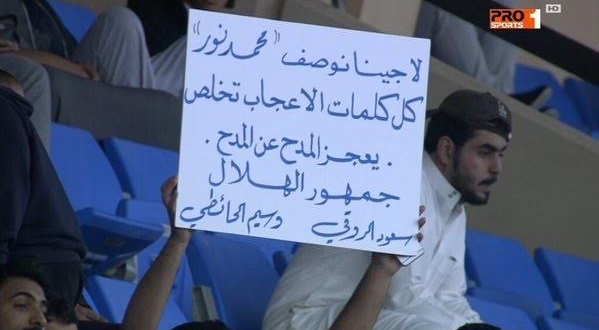 PRO 1 HD
SPORTS
لا جينا نوصف "محمد نور"
كل كلمات الاعجاب تخلص
. يعجز المدح عن المدح .
جمهور الهلال
سعود الروقي وسيم الحائطي